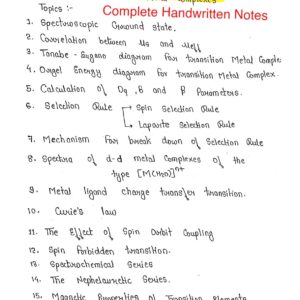 Topics :-
Complete Handwritten Notes
1. Spectroscopic Ground state.
2. Correlation between μs and μeff
3. Tanabe - Sugano diagram For transition Metal Complex
4. Orgel Energy diagram for transition Metal Complex.
5. Calculation of Dq, B and β Parameters.
6. Selection Rule → Spin Selection Rule
→ Laporite Selection Rule
7. Mechanism For break down of Selection Rule
8. Spectra of d-d metal Complexes of the
type [M(H2O)]n+
9. Metal ligand charge transfer transition.
10. Curie's law
11. The Effect of Spin Orbit Coupling
12. Spin Forbidden transition.
13. Spectrochemical Series
14. The Nephelauxetic Series.
15. Magnetic Properties of Transition Elements